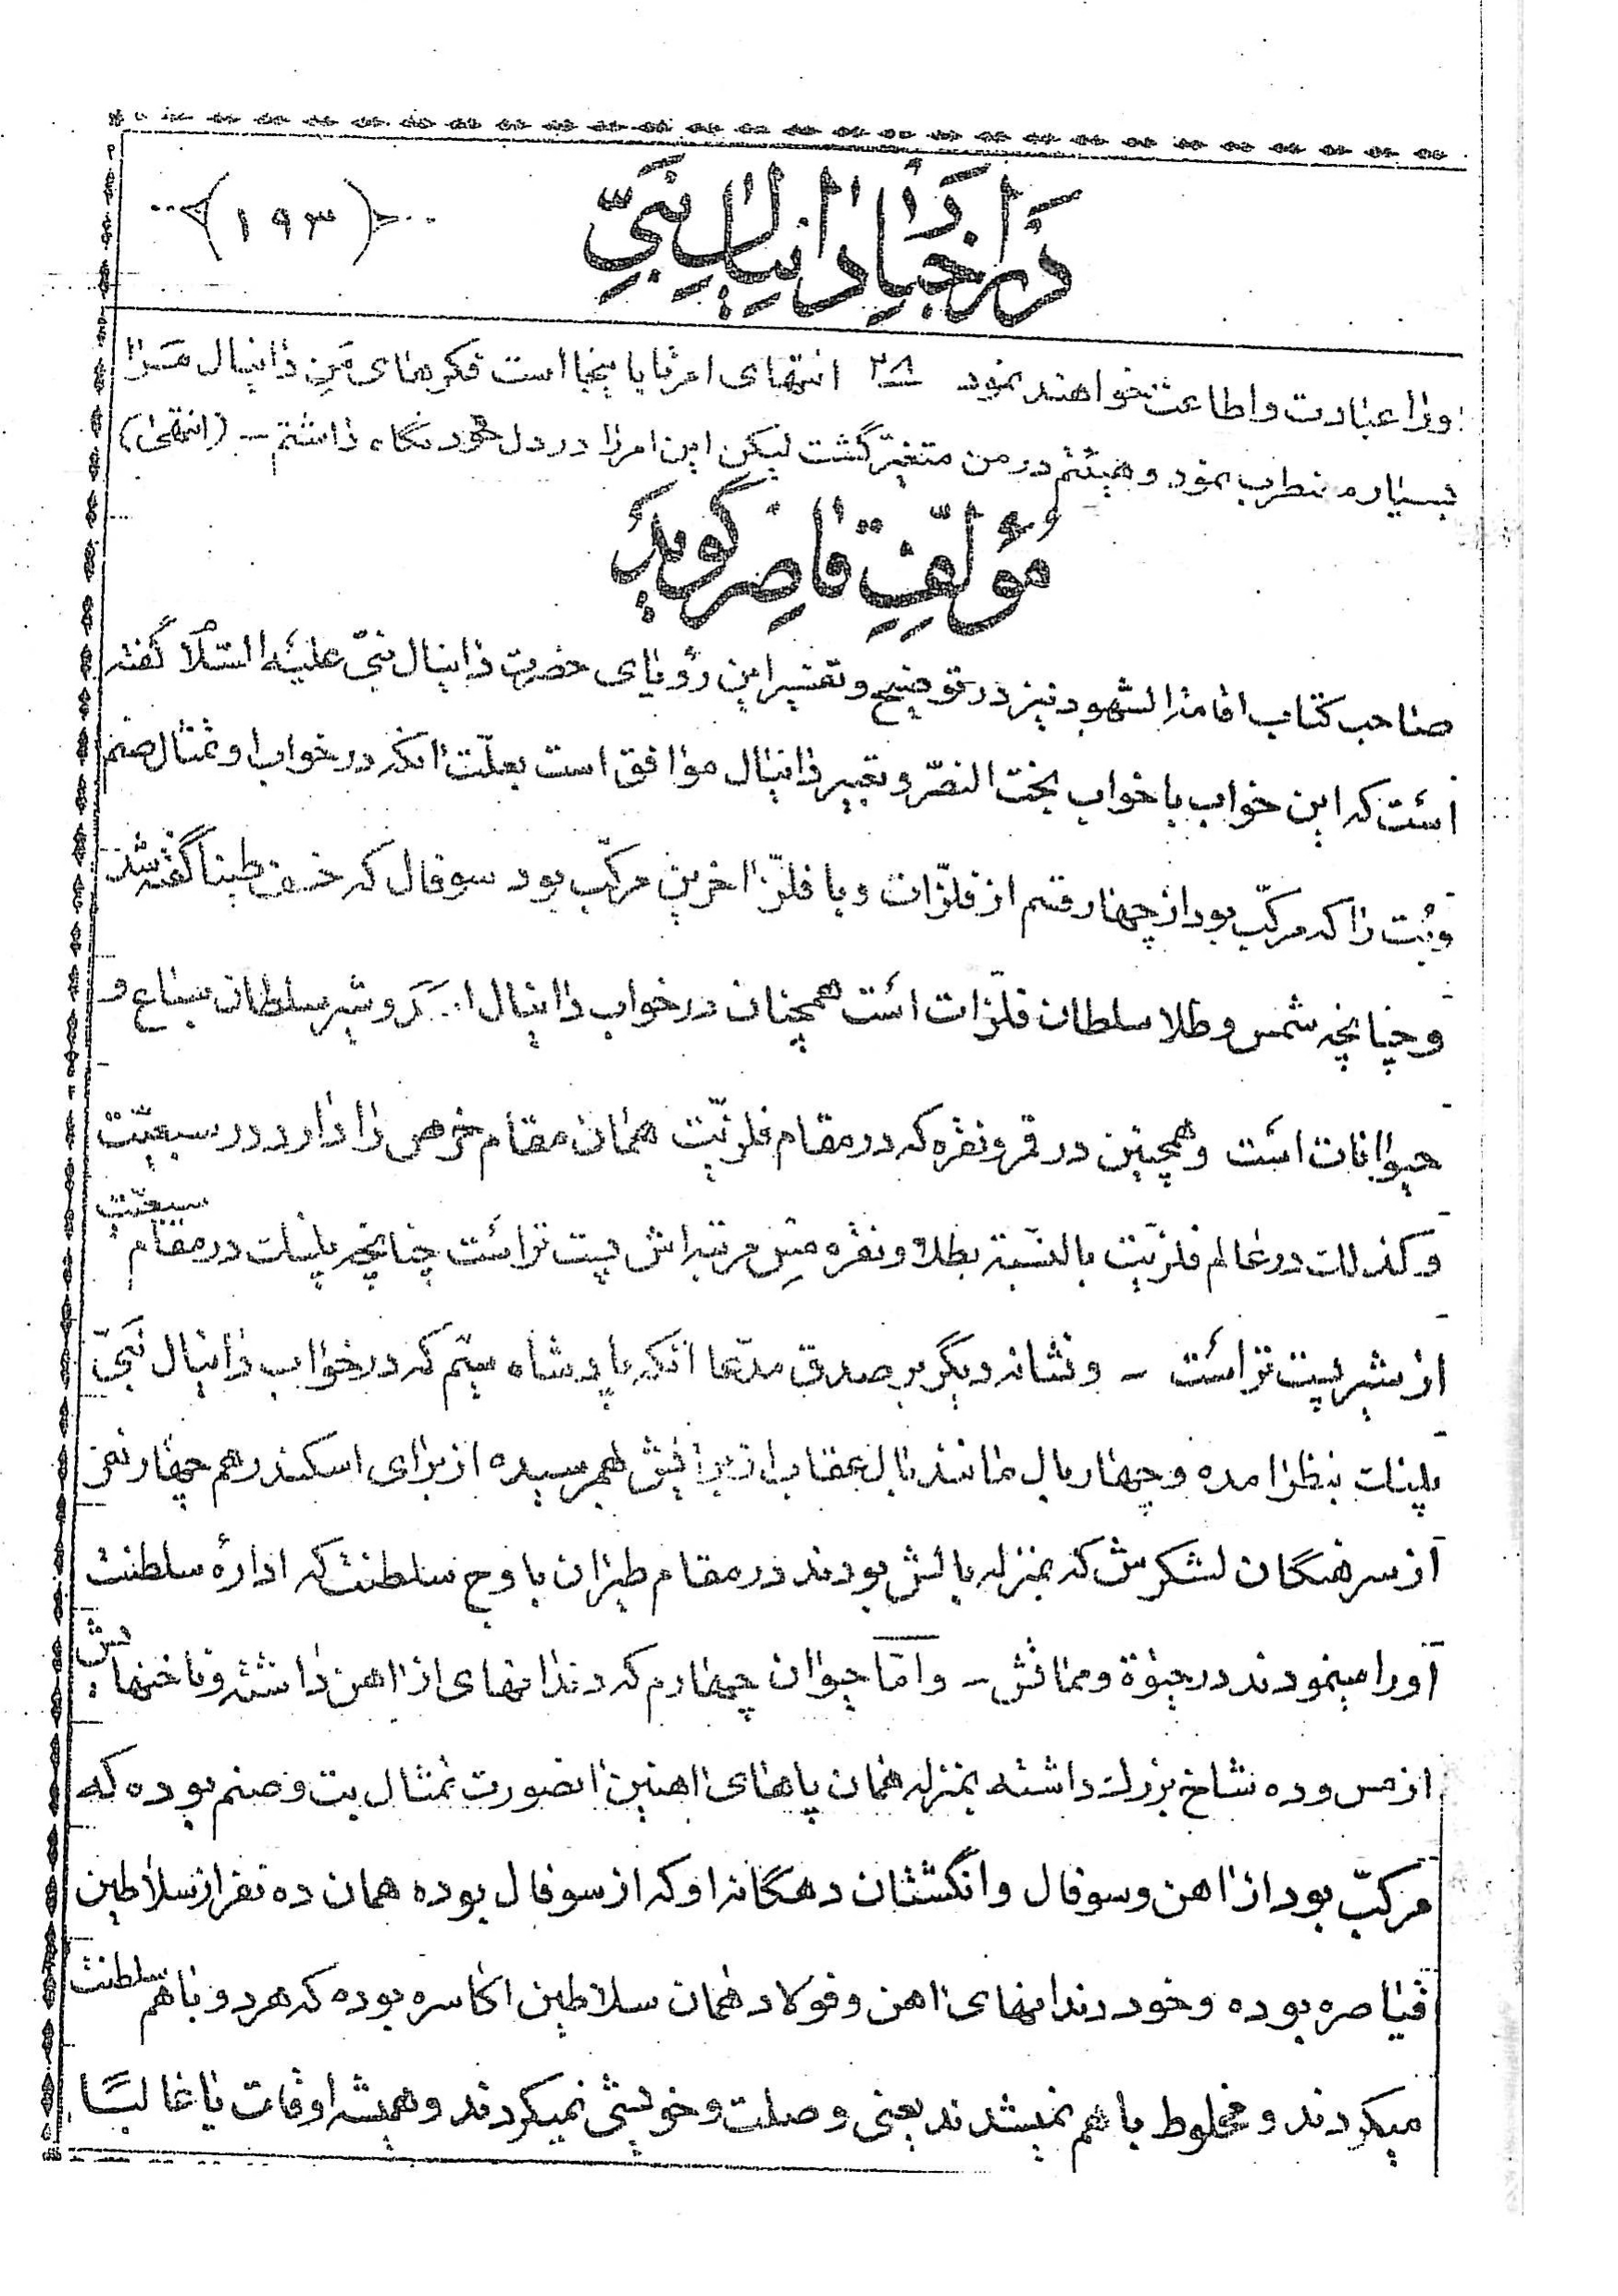 در اخبار دانیال نبیّ
(۱۹۳)
اورا عبادت واطاعت خواهند نمود ۲۸ انتهای امر تا باینجا است فکرهای من دانیال مرا
بسیار مضطرب نمود وهیئتم در من متغیّر گشت لیکن این امر را در دل خود نگاه داشتم – (انتهی)
مُؤلّفِ قاصِر گویدُ
صاحب کتاب اقامة الشهود نیز در توضیح وتفسیر این رؤیای حضرت دانیال نبیّ علیه السّلام گفته
است که این خواب با خواب بخت النصّر و تعبیر دانیال موافق است بعلّت انکه در خواب او تمثال صنم
وبُت را که مرکّب بود از چهار قسم از فلزّات وبا فلزّ اخرین مرکّب بود سوفال که خزف طینا گفته شد
وچنانچه شمس وطلا سلطان فلزّات است همچنان در خواب دانیال وشیر سلطان سباع و
حیوانات است وهمچنین در قمر ونقره که در مقام فلزیّت همان مقام خرس را دارد در سبعیّت
وکذلک در عالم فلزیّت بالنّسبة بطلا ونقره مِس مرتبه اش پست تر است چنانچه پلنک در مقام سبعیّت
از شیر پست تر است – ونشانه دیگر بر صدق مدّعا انکه پادشاه سیّم که در خواب دانیال نبیّ
پلنک بنظر امده وچهار بال مانند بال عقاب از برایش بهم رسیده از برای اسکندر هم چهار نفر
از سرهنگان لشکرش که بمنزله بالش بودند در مقام طیران باوج سلطنت که ادارهٔ سلطنت
اورا مینمودند در حیوة ومماتش – وامّا حیوان چهارم که دندانهای از اهن داشته وناخنهایش
از مس وده شاخ بزرک داشته بمنزله همان پاهای اهنین انصورت تمثال بت وصنم بوده که
مرکّب بود از اهن وسوفال وانگشتان دهگانه او که از سوفال بوده همان ده نفر از سلاطین
قیاصره بوده وخود دندانهای اهن وفولاد همان سلاطین اکاسره بوده که هر دو باهم سلطنت
میکردند ومخلوط با هم نمیشدند یعنی وصلت وخویشی نمیکردند وهمیشه اوقات یا غالبًا